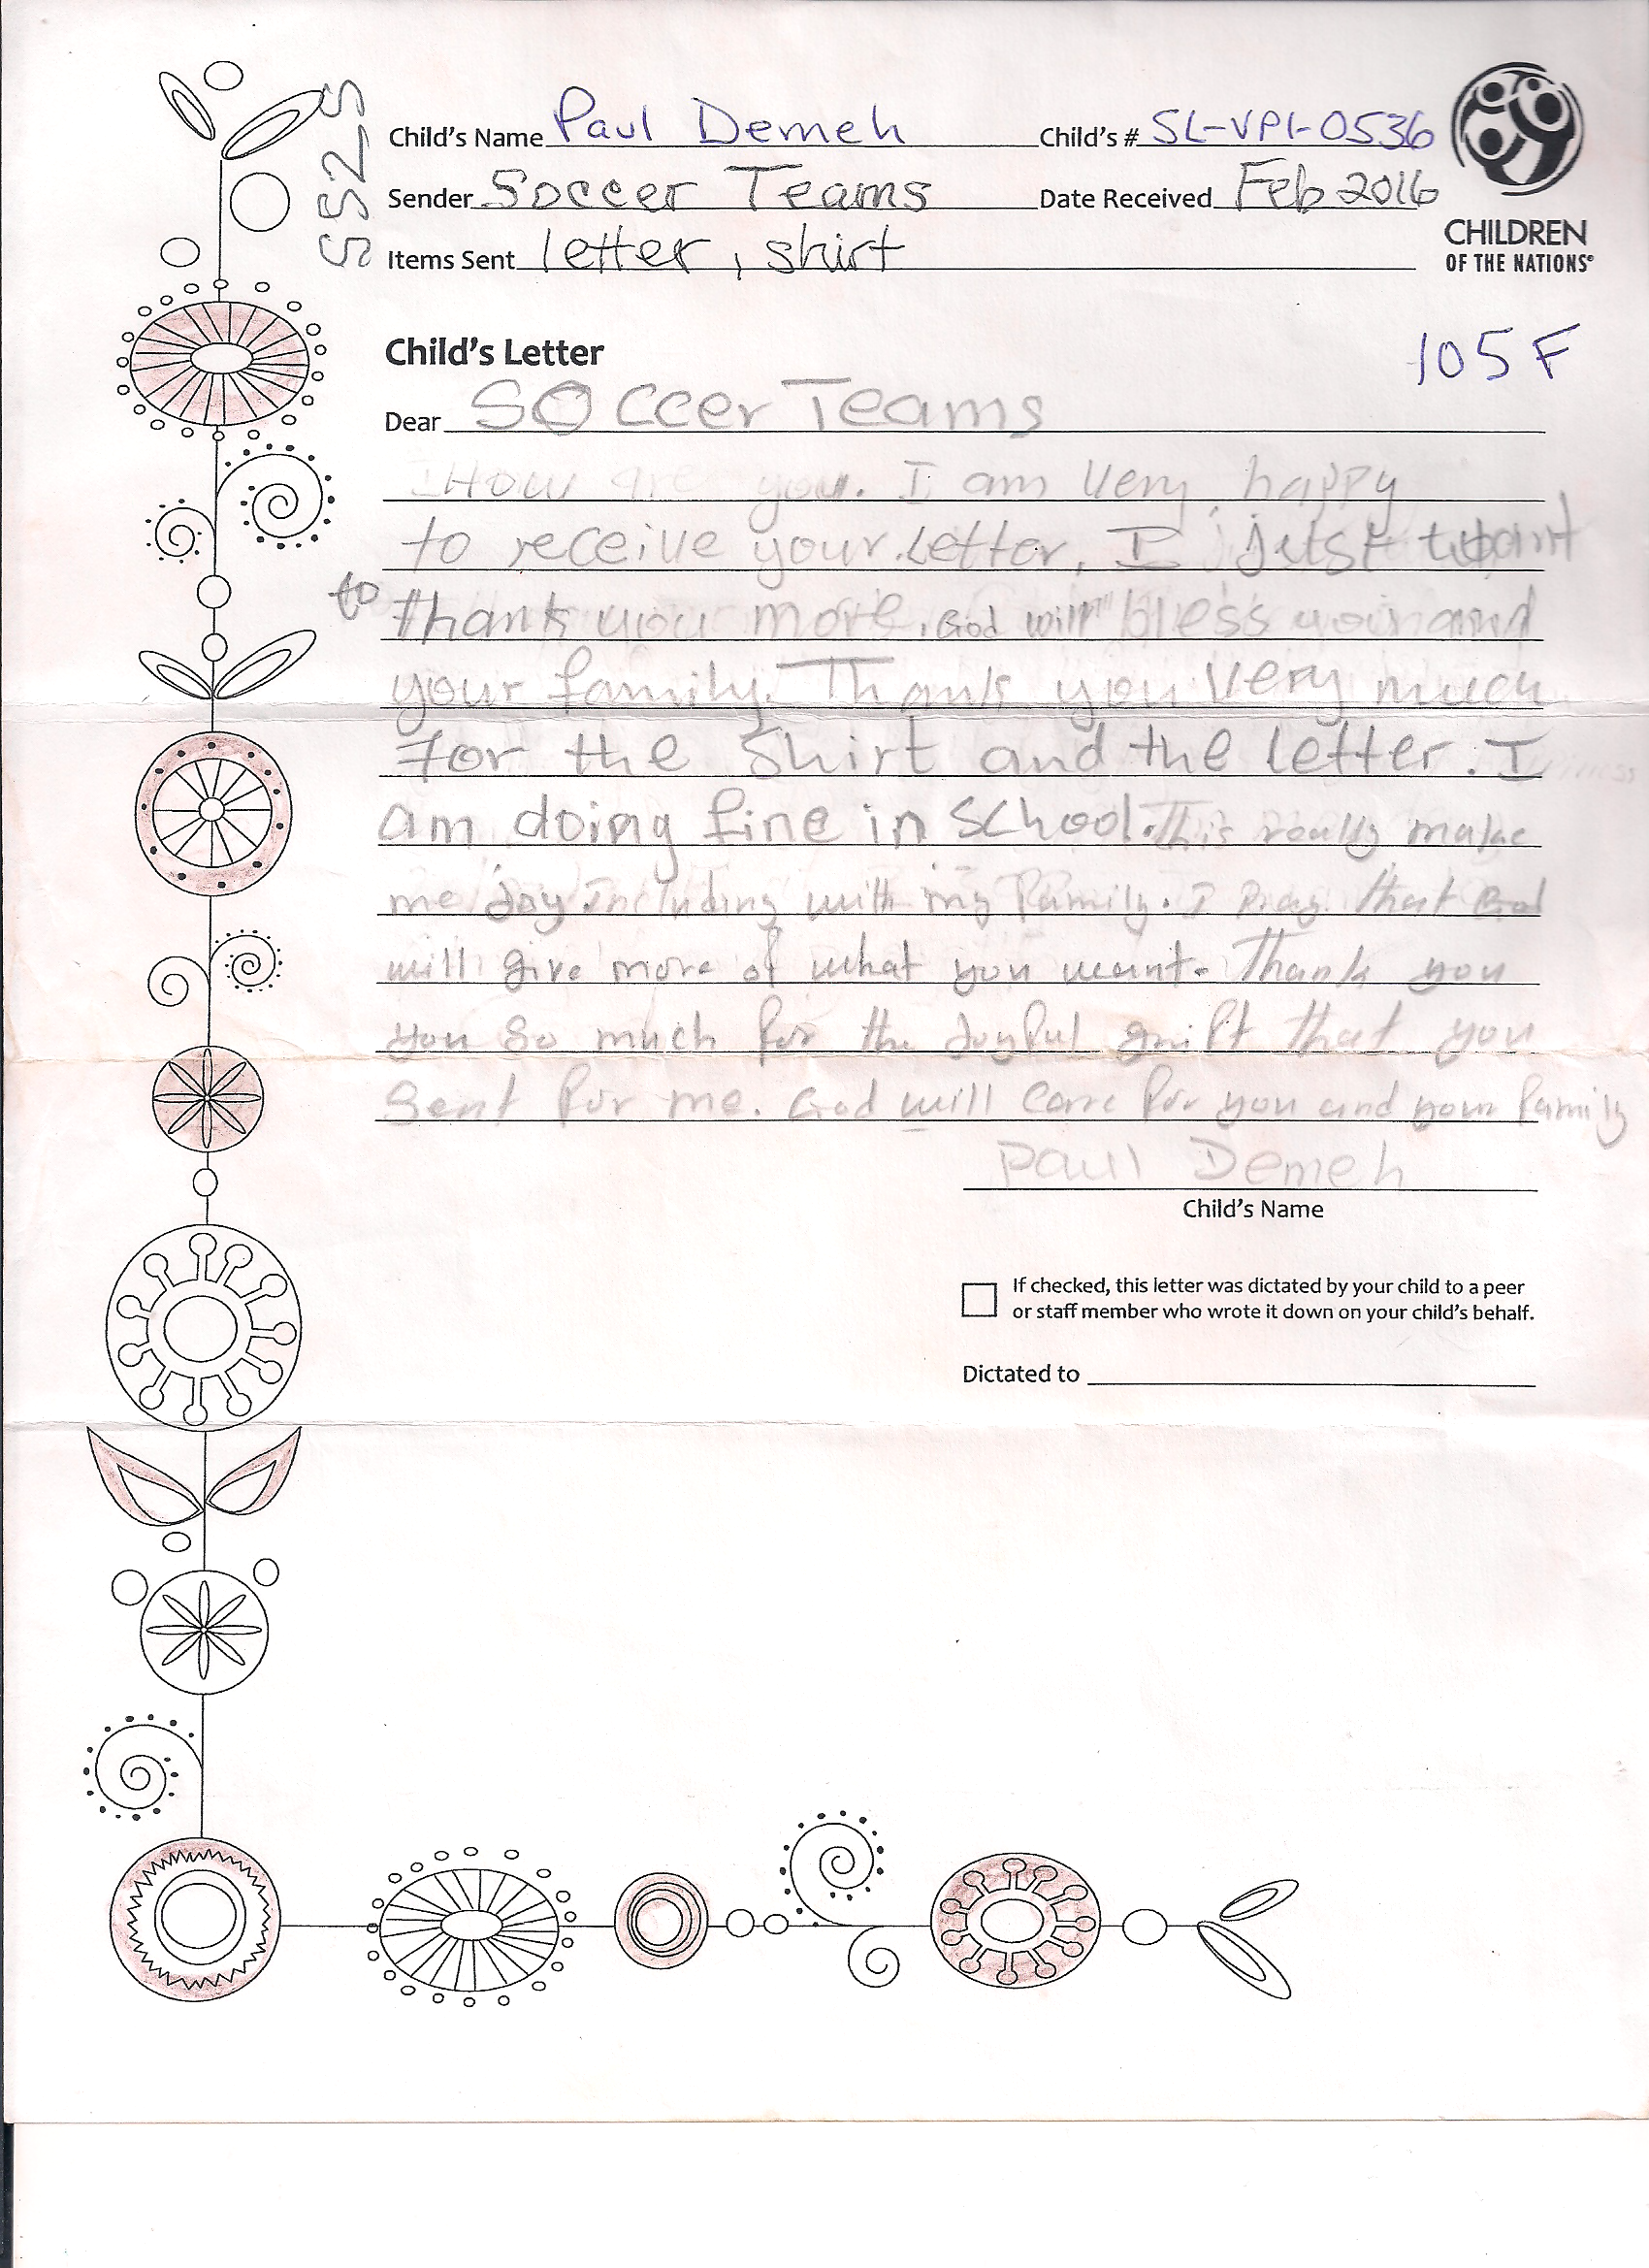 5525
Child's Name Paul Demeh Child's # SL-VPI-0536
Sender Soccer Teams Date Received Feb 2016
Items Sent letter, shirt
CHILDREN
OF THE NATIONS®
105 F
Child's Letter
Dear Soccer Teams
How are you. I am very happy
to receive your Letter, I just want
to thank you more. God will bless you and
your family. Thank you very much
For the Shirt and the Letter. I
am doing fine in School. This really make
me joy including with my Family. I Pray that God
will give more of what you want. Thank you
you so much for the Joyful guift that you
Sent for me. God will care for you and your family
Paul Demeh
Child's Name
If checked, this letter was dictated by your child to a peer
or staff member who wrote it down on your child's behalf.
Dictated to